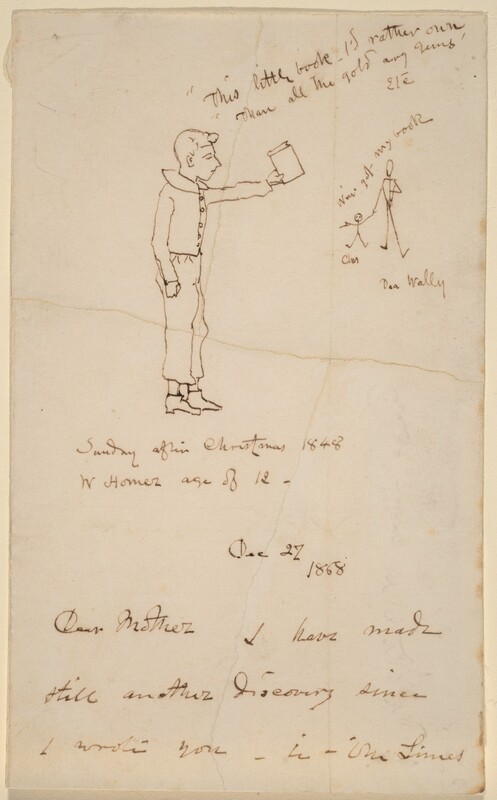 "This little book - I'd rather own
"Than all the gold any gems"
Etc
got my book
Chas
Dea Wally
Sunday after Christmas 1848
W Homer age of 12 -
Dec 27
1868
Dear Mother I have made
still another discovery since
I wrote you - in - The Times